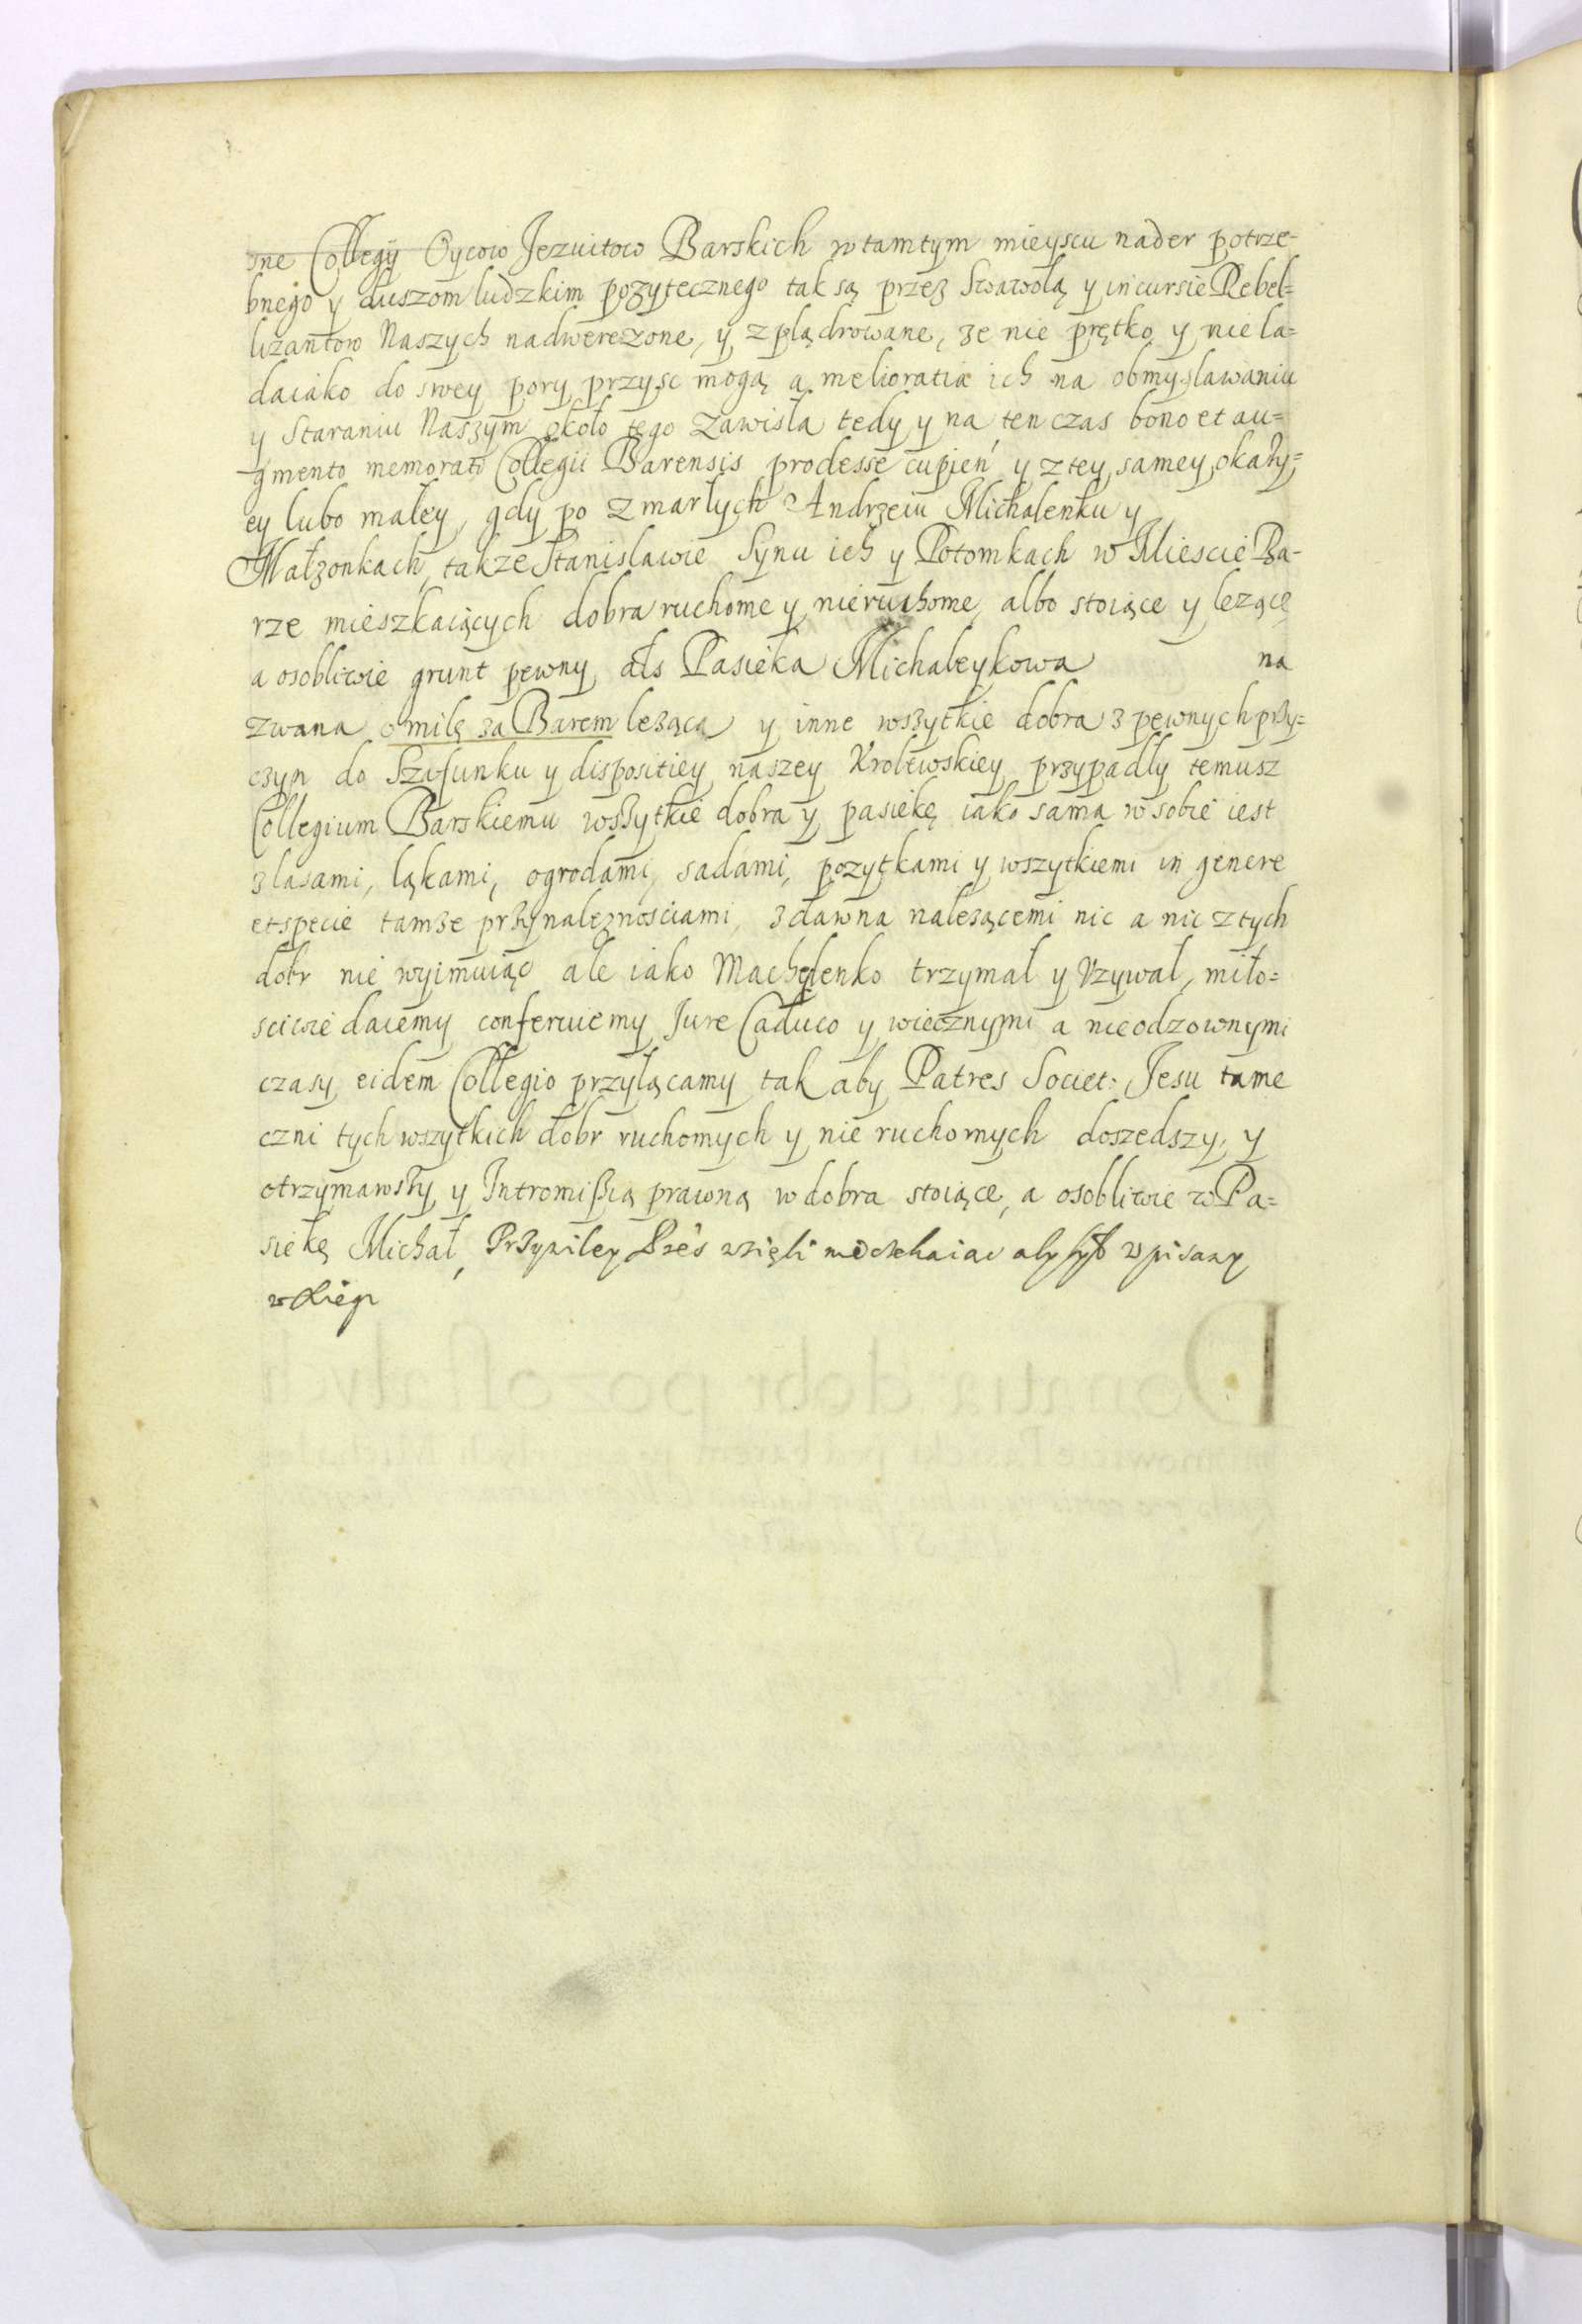 sne Collegij Oycow Jezuitow Barskich w tamtym mieyscu nader potrze-
bnego y duszom ludzkim pozytecznego tak są przez Swawolą y incursie Rebel=
lizantow Naszych nadwerezone, y zplądrowane, ze nie prętko y nie la=
daiako do swey pory przysc mogą a melioratia ich na obmyslawaniu
y Staraniu Naszym około tego zawisła tedy y na ten czas bono et au=
gmento memorati Collegii Barensis prodesse cupien y z tey samey okazy=
ey lubo małey, gdy po zmarłych Andrzeiu Michalenku y
Małzonkach, takze Stanislawie Synu ich y Potomkach w Miescie Ba-
rze mieszkaiących dobra ruchome y nieruchome, albo stoiące y lezące
a osobliwie grunt pewny als Pasieka Michaleykowa na
zwana o milę za Barem lezącą y inne wszytkie dobra z pewnych przy=
czyn do Szafunku y dispositiey naszey Krolewskiey przypadły temusz
Collegium Barskiemu wszytkie dobra y pasiekę iako sama w sobie iest
z lasami, ląkami, ogrodami, sadami, pozytkami y wszytkiemi in genere
et specie tamze przynaleznosciami, zdawna nalezącemi nic a nic z tych
dobr nie wyimuiąc ale iako Machelenko trzymał y Vzywał, miło=
sciwie daiemy conferuiemy Jure Caduco y wiecznymi a nieodzownymi
czasy eidem Collegio przyłącamy tak aby Patres Societ: Jesu tame
czni tych wszytkich dobr ruchomych y nie ruchomych doszedszy, y
otrzymawszy y Intromissią prawną w dobra stoiące, a osobliwie w Pa=
siekę Michał, Przywiley wzięli nie czekaiac aby był wpisany
w Xiegi